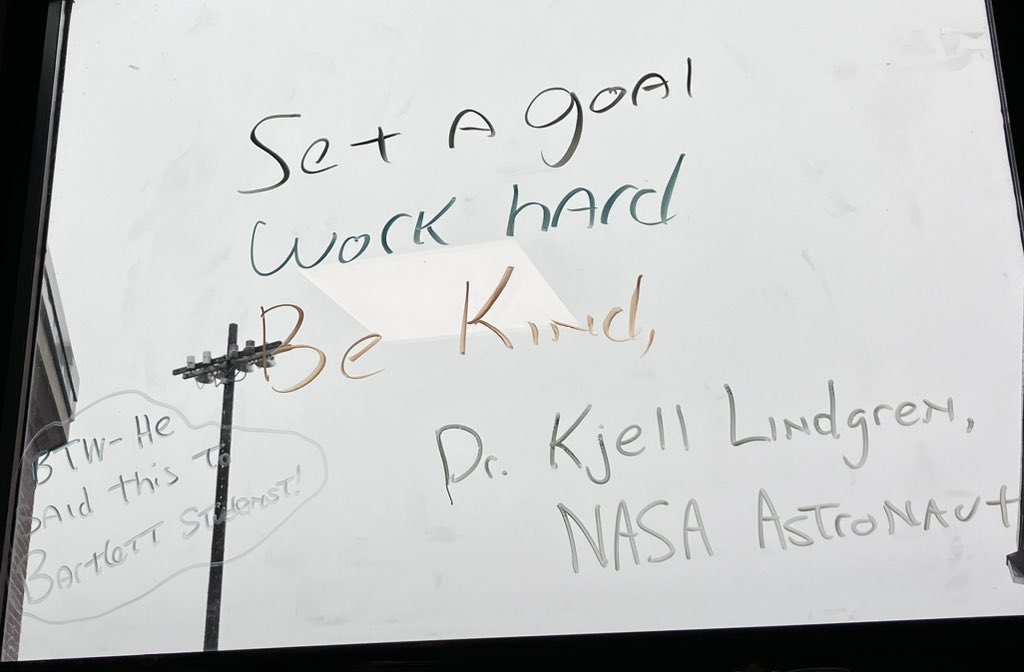 Set A goal
Work hard
Be Kind,
Dr. Kjell Lindgren,
NASA Astronaut
BTW - He
said this To
Bartlett Students!